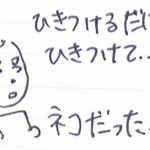 ひきつけるだけ
ひきつけて‥
ネコだった‥